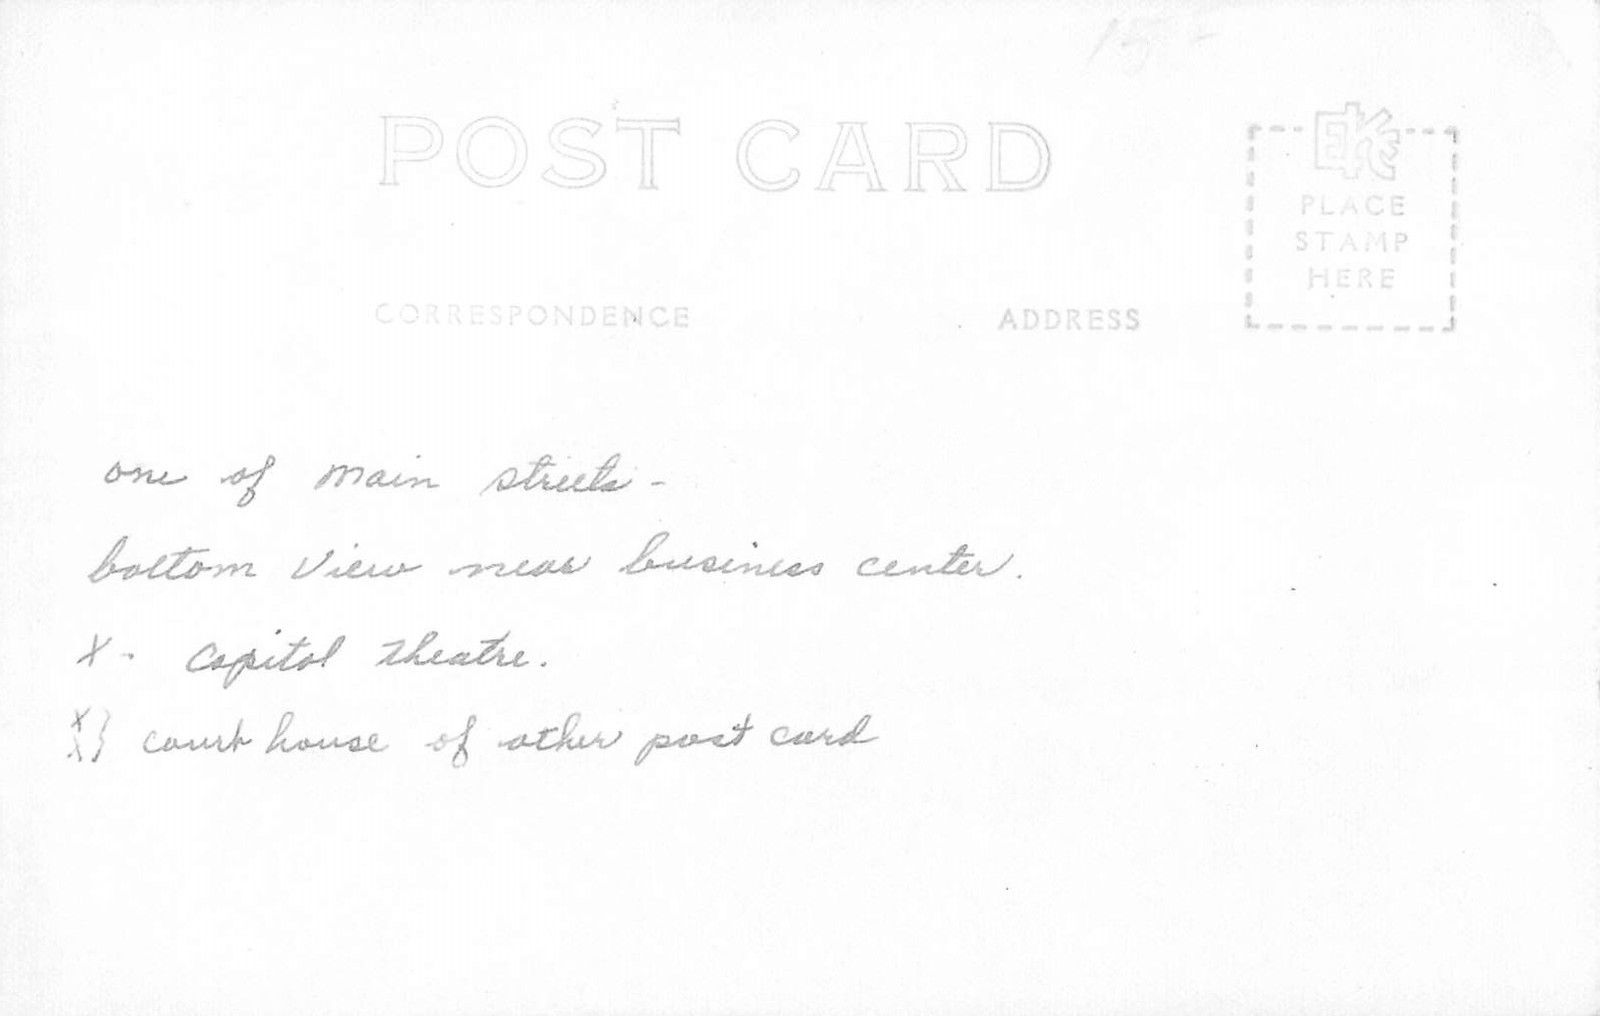 15-
POST CARD
EKC
PLACE
STAMP
HERE
CORRESPONDENCE
ADDRESS
one of main streets -
bottom view near business center.
X - Capitol theatre.
X
X} court house of other post card